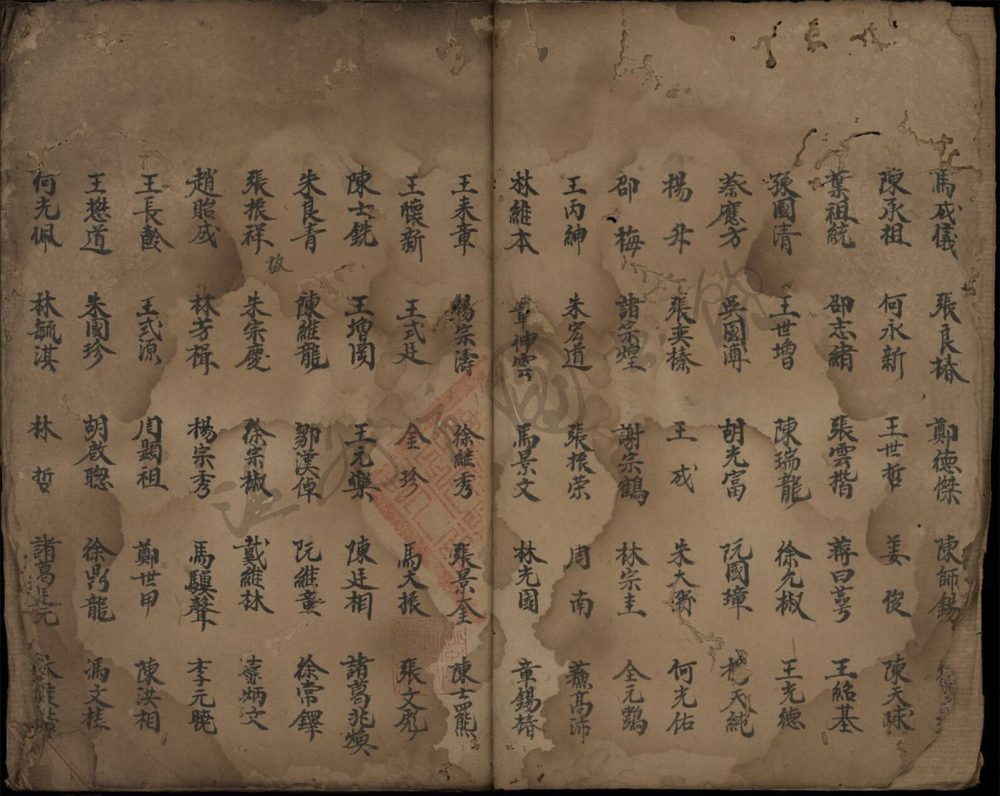 馬成儀 張良椿 鄭德傑 陳師錫
陳承祖 何永新 王世哲 姜俊 陳天球
葉祖統 邵志綃 張雲揩 蔣曰萼 王紹基
孫國清 王世增 陳瑞龍 徐允椒 王光德
蔡應方 吳國溥 胡光富 阮國璋 天純
楊升 張奕榛 王成 朱大濟 何光佑
邵梅 諸宗煌 謝宗鶴 林宗圭 全元鸚
王丙紳 朱宏道 張振荣 周南 蕭高沛
林維本 章仲雲 馬景文 林光國 章錫椿
王耒章 楊宗濤 徐継秀 張景全 陳士羆
王懷新 王式廷 金珍 馬大振 張文彪
陳士銑 王增閏 王元樂 陳廷相 諸葛兆煥
朱良青 陳維龍 鄒漢倬 阮維棄 徐常鐸
張振祥 故 朱宗慶 徐宗椒 戴維林 炳文
趙貽成 林芳楫 楊宗秀 馬驥聲 李元曉
王長齡 王式源 周顕祖 鄭世甲 陳洪相
王懋道 朱國珍 胡啟聰 徐鼎龍 馮文桂
何光佩 林毓淇 林哲 諸葛光